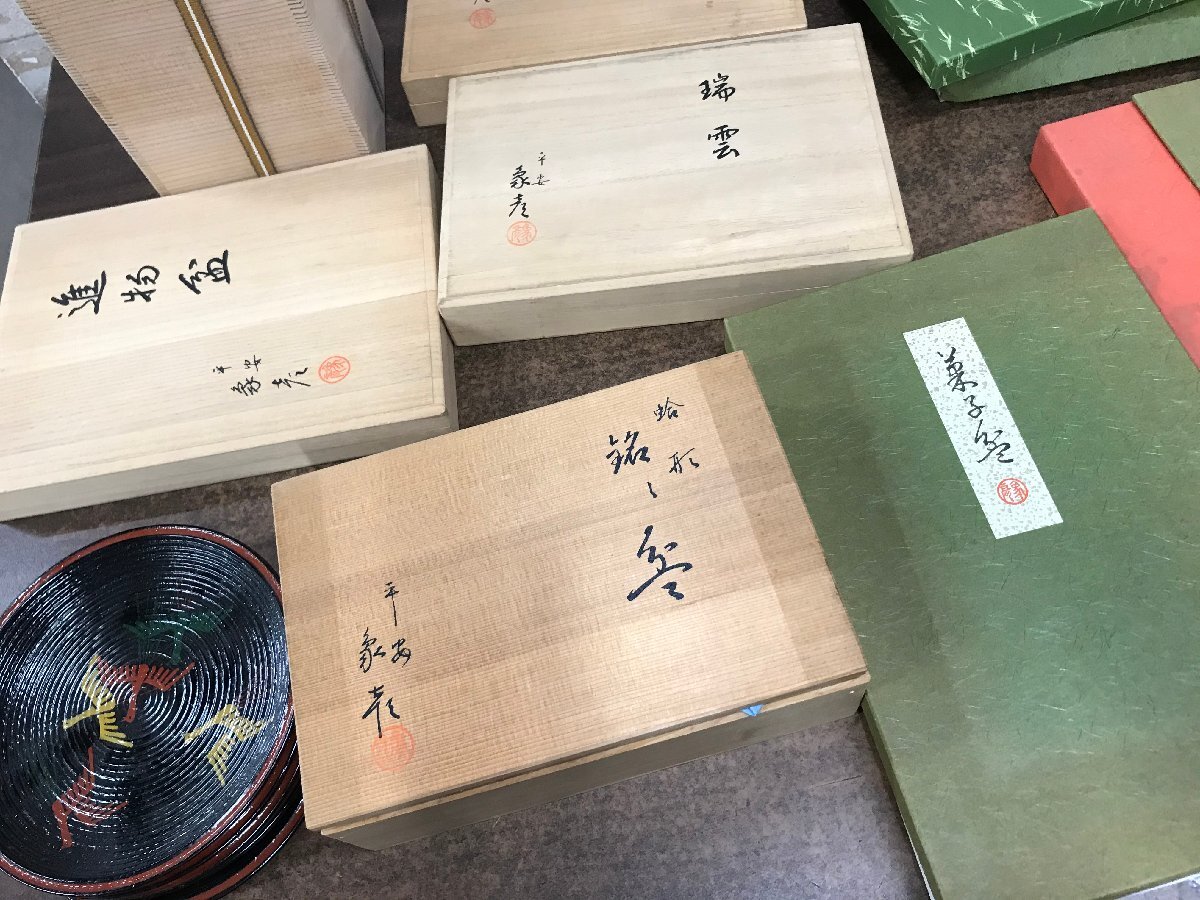 瑞雲
平安
象彦
進物盆
平安
象彦
蛤形
銘々盆
平安
象彦
菓子盆